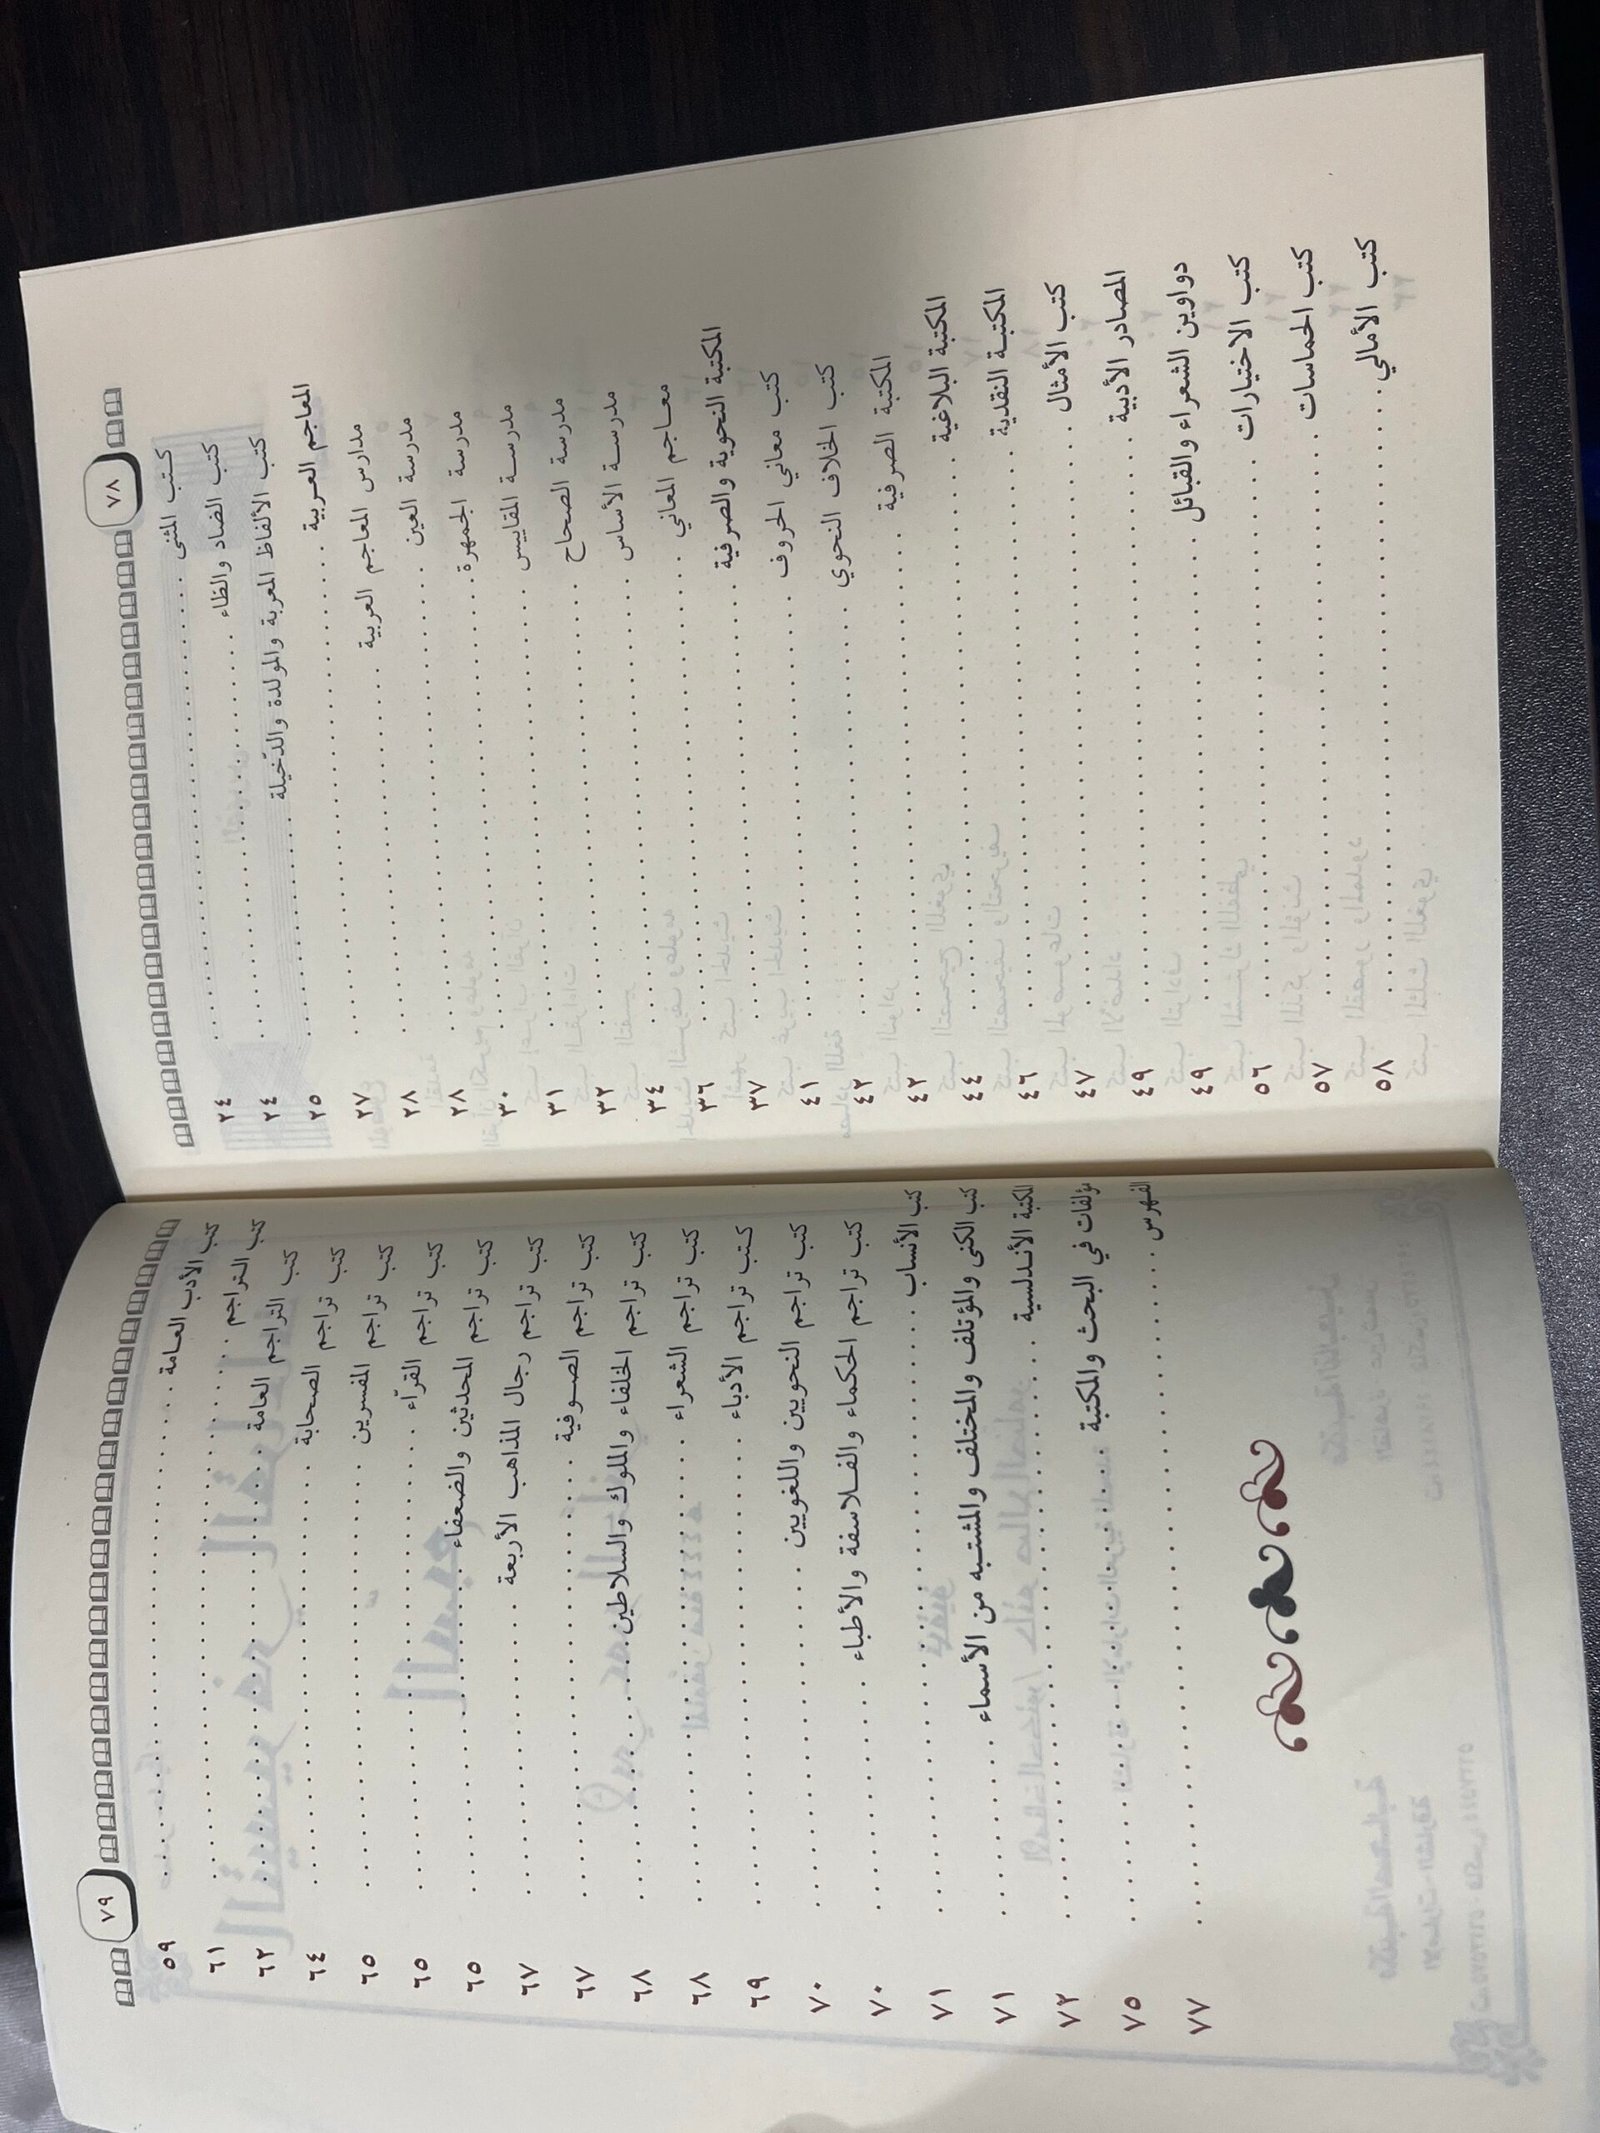 ٧٨
كتب المثنى ٢٤
كتب الضاد والظاء ٢٤
كتب الألفاظ المعربة والمولدة والدّخيلة ٢٥
المعاجم العربية ٢٧
مدارس المعاجم العربية ٢٨
مدرسة العين ٢٨
مدرسة الجمهرة ٣٠
مدرسة المقاييس ٣١
مدرسة الصحاح ٣٢
مدرسة الأساس ٣٤
معاجم المعاني ٣٦
المكتبة النحوية والصرفية ٣٧
كتب معاني الحروف ٤١
كتب الخلاف النحوي ٤٢
المكتبة الصرفية ٤٢
المكتبة البلاغية ٤٤
المكتبة النقدية ٤٦
كتب الأمثال ٤٧
المصادر الأدبية ٤٩
دواوين الشعراء والقبائل ٤٩
كتب الاختيارات ٥٦
كتب الحماسات ٥٧
كتب الأمالي ٥٨
٧٩
كتب الأدب العامة ٥٩
كتب التراجم ٦١
كتب التراجم العامة ٦٢
كتب تراجم الصحابة ٦٤
كتب تراجم المفسرين ٦٥
كتب تراجم القرّاء ٦٥
كتب تراجم المحدثين والضعفاء ٦٥
كتب تراجم رجال المذاهب الأربعة ٦٧
كتب تراجم الصوفية ٦٧
كتب تراجم الخلفاء والملوك والسلاطين ٦٨
كتب تراجم الشعراء ٦٨
كتب تراجم الأدباء ٦٩
كتب تراجم النحويين واللغويين ٧٠
كتب تراجم الحكماء والفلاسفة والأطباء ٧٠
كتب الأنساب ٧١
كتب الكنى والمؤتلف والمختلف والمشتبه من الأسماء ٧١
المكتبة الأندلسية ٧٢
مؤلفات في البحث والمكتبة ٧٥
الفهرس ٧٧